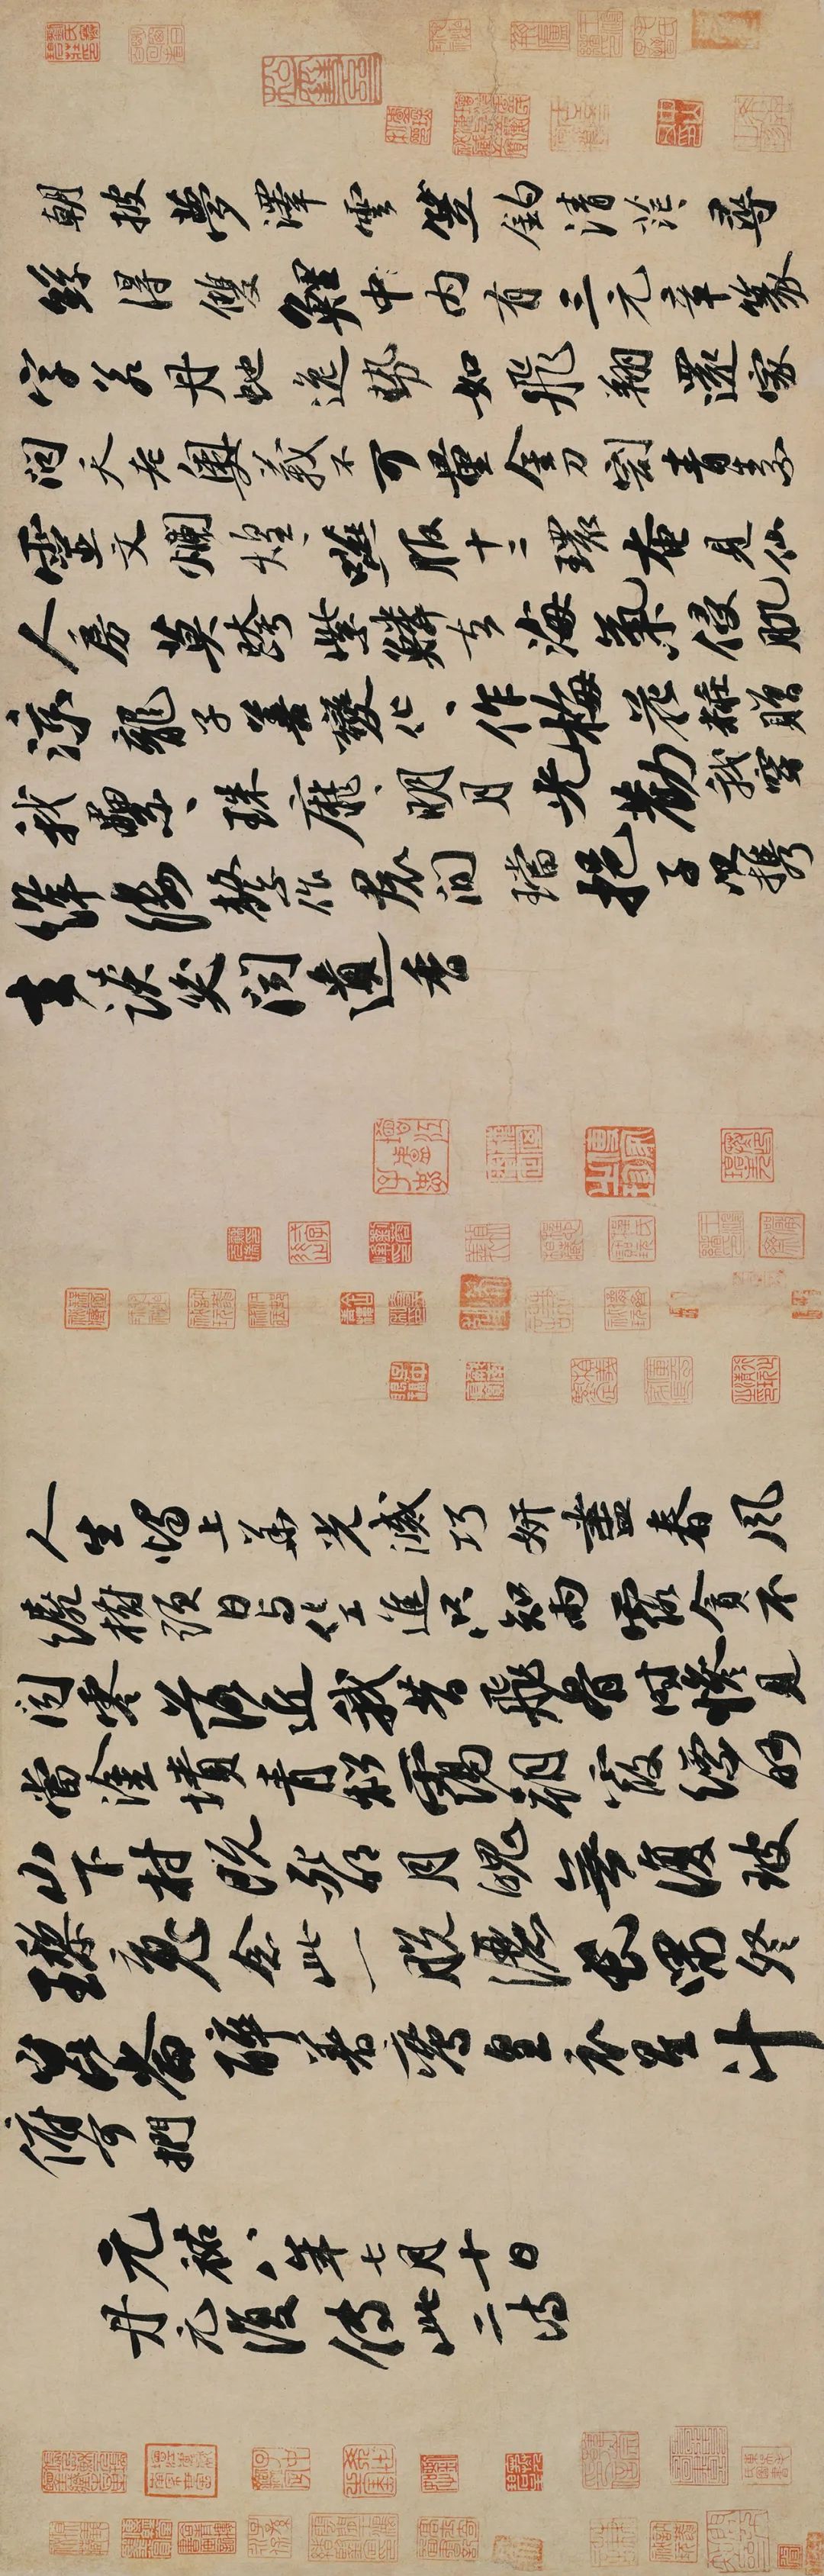 朝披夢澤雲笠釣清茫〻尋
絲得雙鯉中內有三元章篆
字若丹蛇逸勢如飛翔還家
問天老奧義不可量金刀割青素
靈文爛煌〻嚥服十二環奄見仙
人房莫跨紫鱗去海氣侵肌
涼龍子善變化〻作梅花粧贈
我纍〻珠靡〻明月光勸我穿
絳縷繫作裾間璫挹子以攜
去談笑聞遺香
人生燭上華光滅巧妍盡春風
繞樹頭日與化工進只知雨露貪不
聞零落近我昔飛骨時慘見
當塗墳青松靄朝霞縹緲
山下村既死明月魄無復玻
璃魂念此一脫灑長嘯登
崑崙醉著鸞皇衣星斗
俯可捫
元祐八年七月十日
丹元復傳此二詩